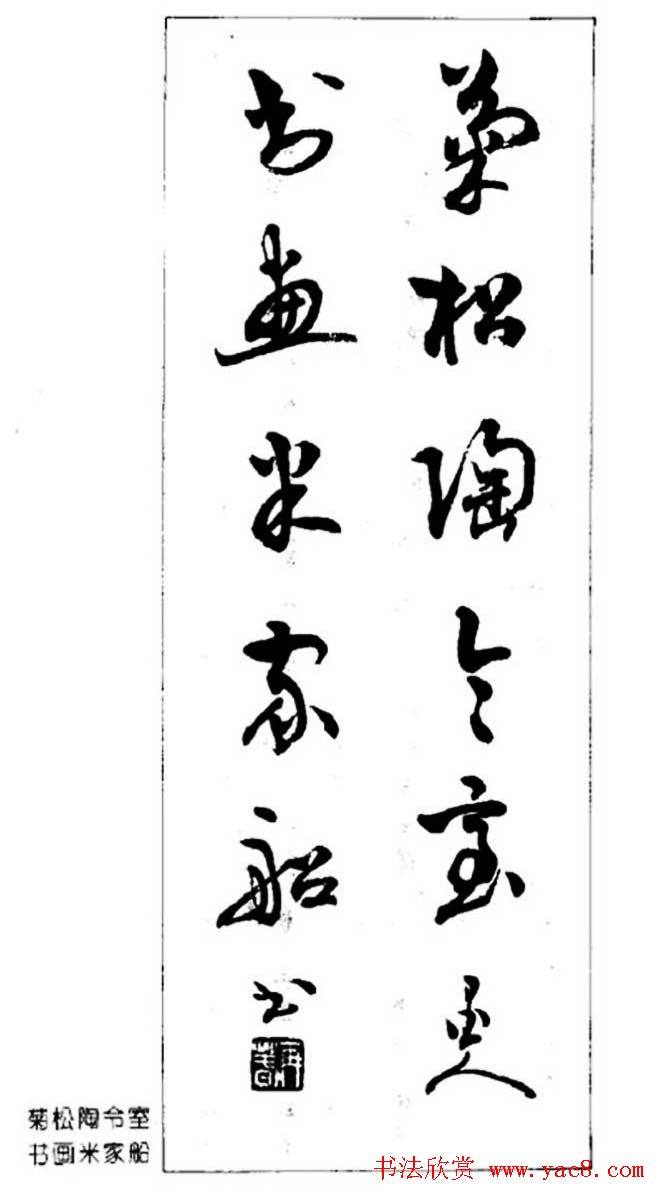 菊松陶令室
书畫米家船
书
菊松陶令室
书画米家船
书法欣赏 www.yac8.com